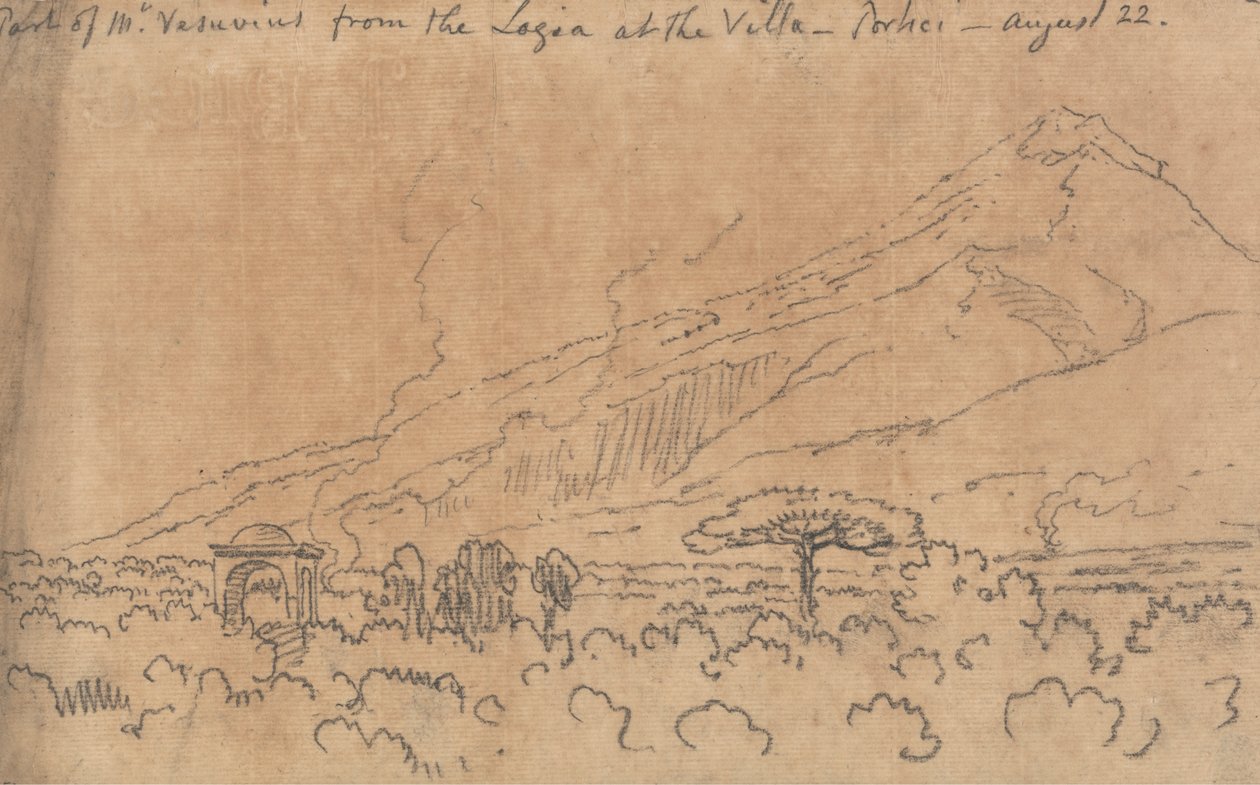 Part of Mt. Vesuvius from the Logia at the Villa — Portici — august 22.